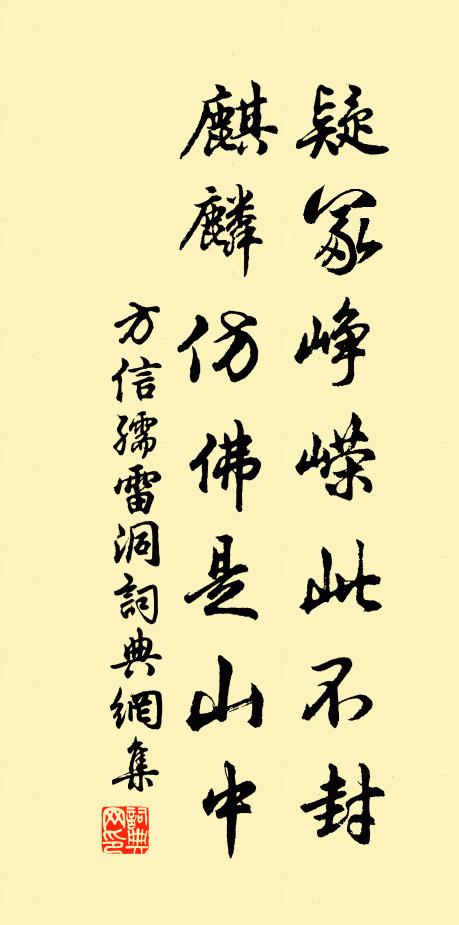 疑冢峥嵘此不封
麒麟仿佛是山中
方信孺雷洞詞典網集
詞典网印